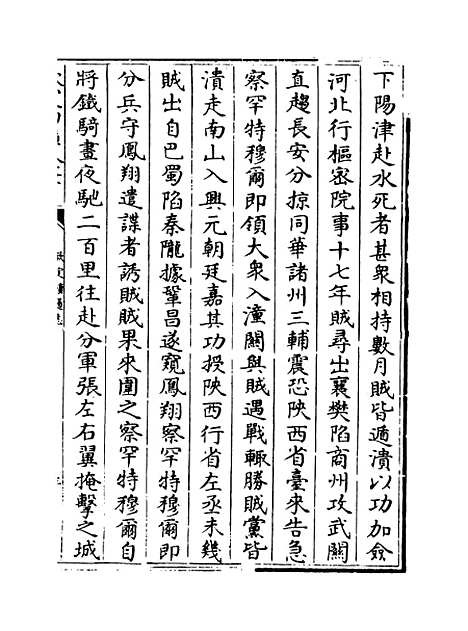 下陽津赴水死者甚衆相持數月賊皆遁潰以功加僉
河北行樞密院事十七年賊尋出襄樊陷商州攻武關
直趨長安分掠同華諸州三輔震恐陜西省臺來告急
察罕特穆爾即領大衆入潼關與賊遇戰輒勝賊黨皆
潰走南山入興元朝廷嘉其功授陜西行省左丞未幾
賊出自巴蜀陷秦隴據鞏昌遂窺鳳翔察罕特穆爾即
分兵守鳳翔遣諜者誘賊賊果來圍之察罕特穆爾自
將鐵騎晝夜馳二百里往赴分軍張左右翼掩擊之城